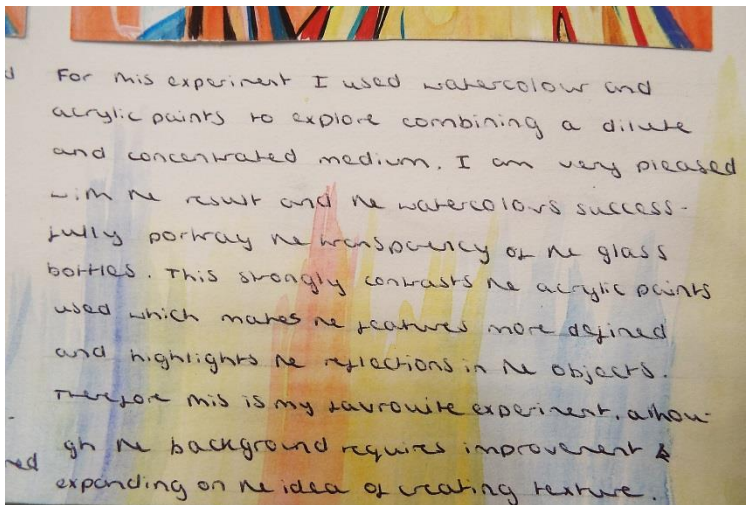 For this experiment I used watercolour and
acrylic paints to explore combining a dilute
and concentrated medium. I am very pleased
with the result and the watercolours success-
fully portray the transparency of the glass
bottles. This strongly contrasts the acrylic paints
used which makes the features more defined
and highlights the reflections in the objects.
Therefore this is my favrouite experiment, althou-
gh the background requires improvement &
expanding on the idea of creating texture.